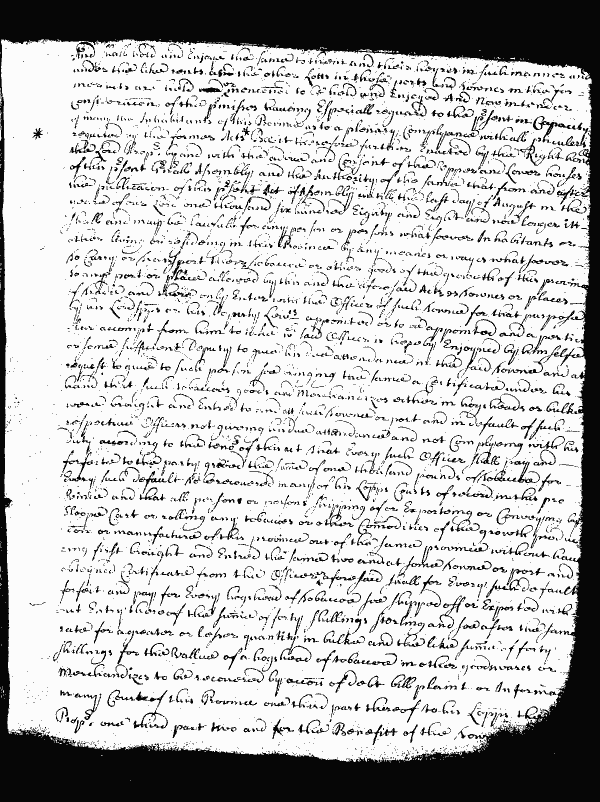 And shall hold and Enjoye the same to them and their heyres in such manner and
under the like rents and the other Lotts in those ports and Townes in the for-
mer acts are held or menconed to be held and Enjoyed And Now intender
Consideracon of the p̃misses having Especiall reguard to the p̃sent in Capacity
of many the Inhabitants of this Province as to a plenary Complyance with all p̃ticulers
required by the former Acts Bee it therefore further Enacted by the Right hon
the Lord Prop̃ry by and with the advice and Consent of the upper and Lower houses
of this p̃sent Gen̄all Assembly and the Authority of the same that from and after
the publication of this p̃sent Act of Assembly untill the last day of August in the
yeare of our Lord one thousand six hundred Eighty and Eight and noe longer itt
shall and may be lawfull for any person or persons whatsoever Inhabitants or
others living or residing in this Province by any meanes or wayes whatsoever
to Carry or transport their tobaccoe or other goods of the growth of this province
to any port or place allowed by this and the aforesaid Acts or Townes or places
of and there only Enter with the Officer of such Towne for that purpose
by his Lordpps or his Deputy Leivts appointed or to be appointed and a perticu
ler accompt from him to take wch said Officer is hereby Enjoyned by himselfe
or some sufficient Deputy to give his due attendance in the said Towne and at
request to give to such person soe bringing the same a Certificate under his
hand that such tobaccoes goods and Merchandizes either in hogsheads or bulke
were brought and Entred to and att such Towne or port and in default of such
respective Officers not giveing his due attendance and not Complyeing with his
duty according to the tenor of this act that Every such Officer shall pay and
forfeite to the party grieved the sum̄e of one thousand pounds of tobaccoe for
Every such default to be recovered in any of his Lopps Courts of record in this pro
vince and that all persons or persons shipping of or Exporteing or Conveying by
Sloope Cart or rolling any tobaccoes or other Com̄odities of the growth produc
tion or manufacture of this province out of the same province without have
ing first brought and Entred the same two and at some Towne or port and
obteyned Certificate from the Officer aforesaid shall for Every such default
forfeit and pay for Every hogshead of tobaccoe soe shipped off or Exported with
out Entry thereof the sum̄e of forty shillings sterling and soe after the same
rate for a greater or lesser quantity in bulke and the like sum̄e of forty
shillings for the Vallue of a hogshead of tobaccoe in other goods wares or
Merchandizes to be recovered by accon of debt bill plaint or Informa
in any Courte of this Province one third part thereof to his Lopp the
Prop̃ry one third part two and for the Benefitt of the Town